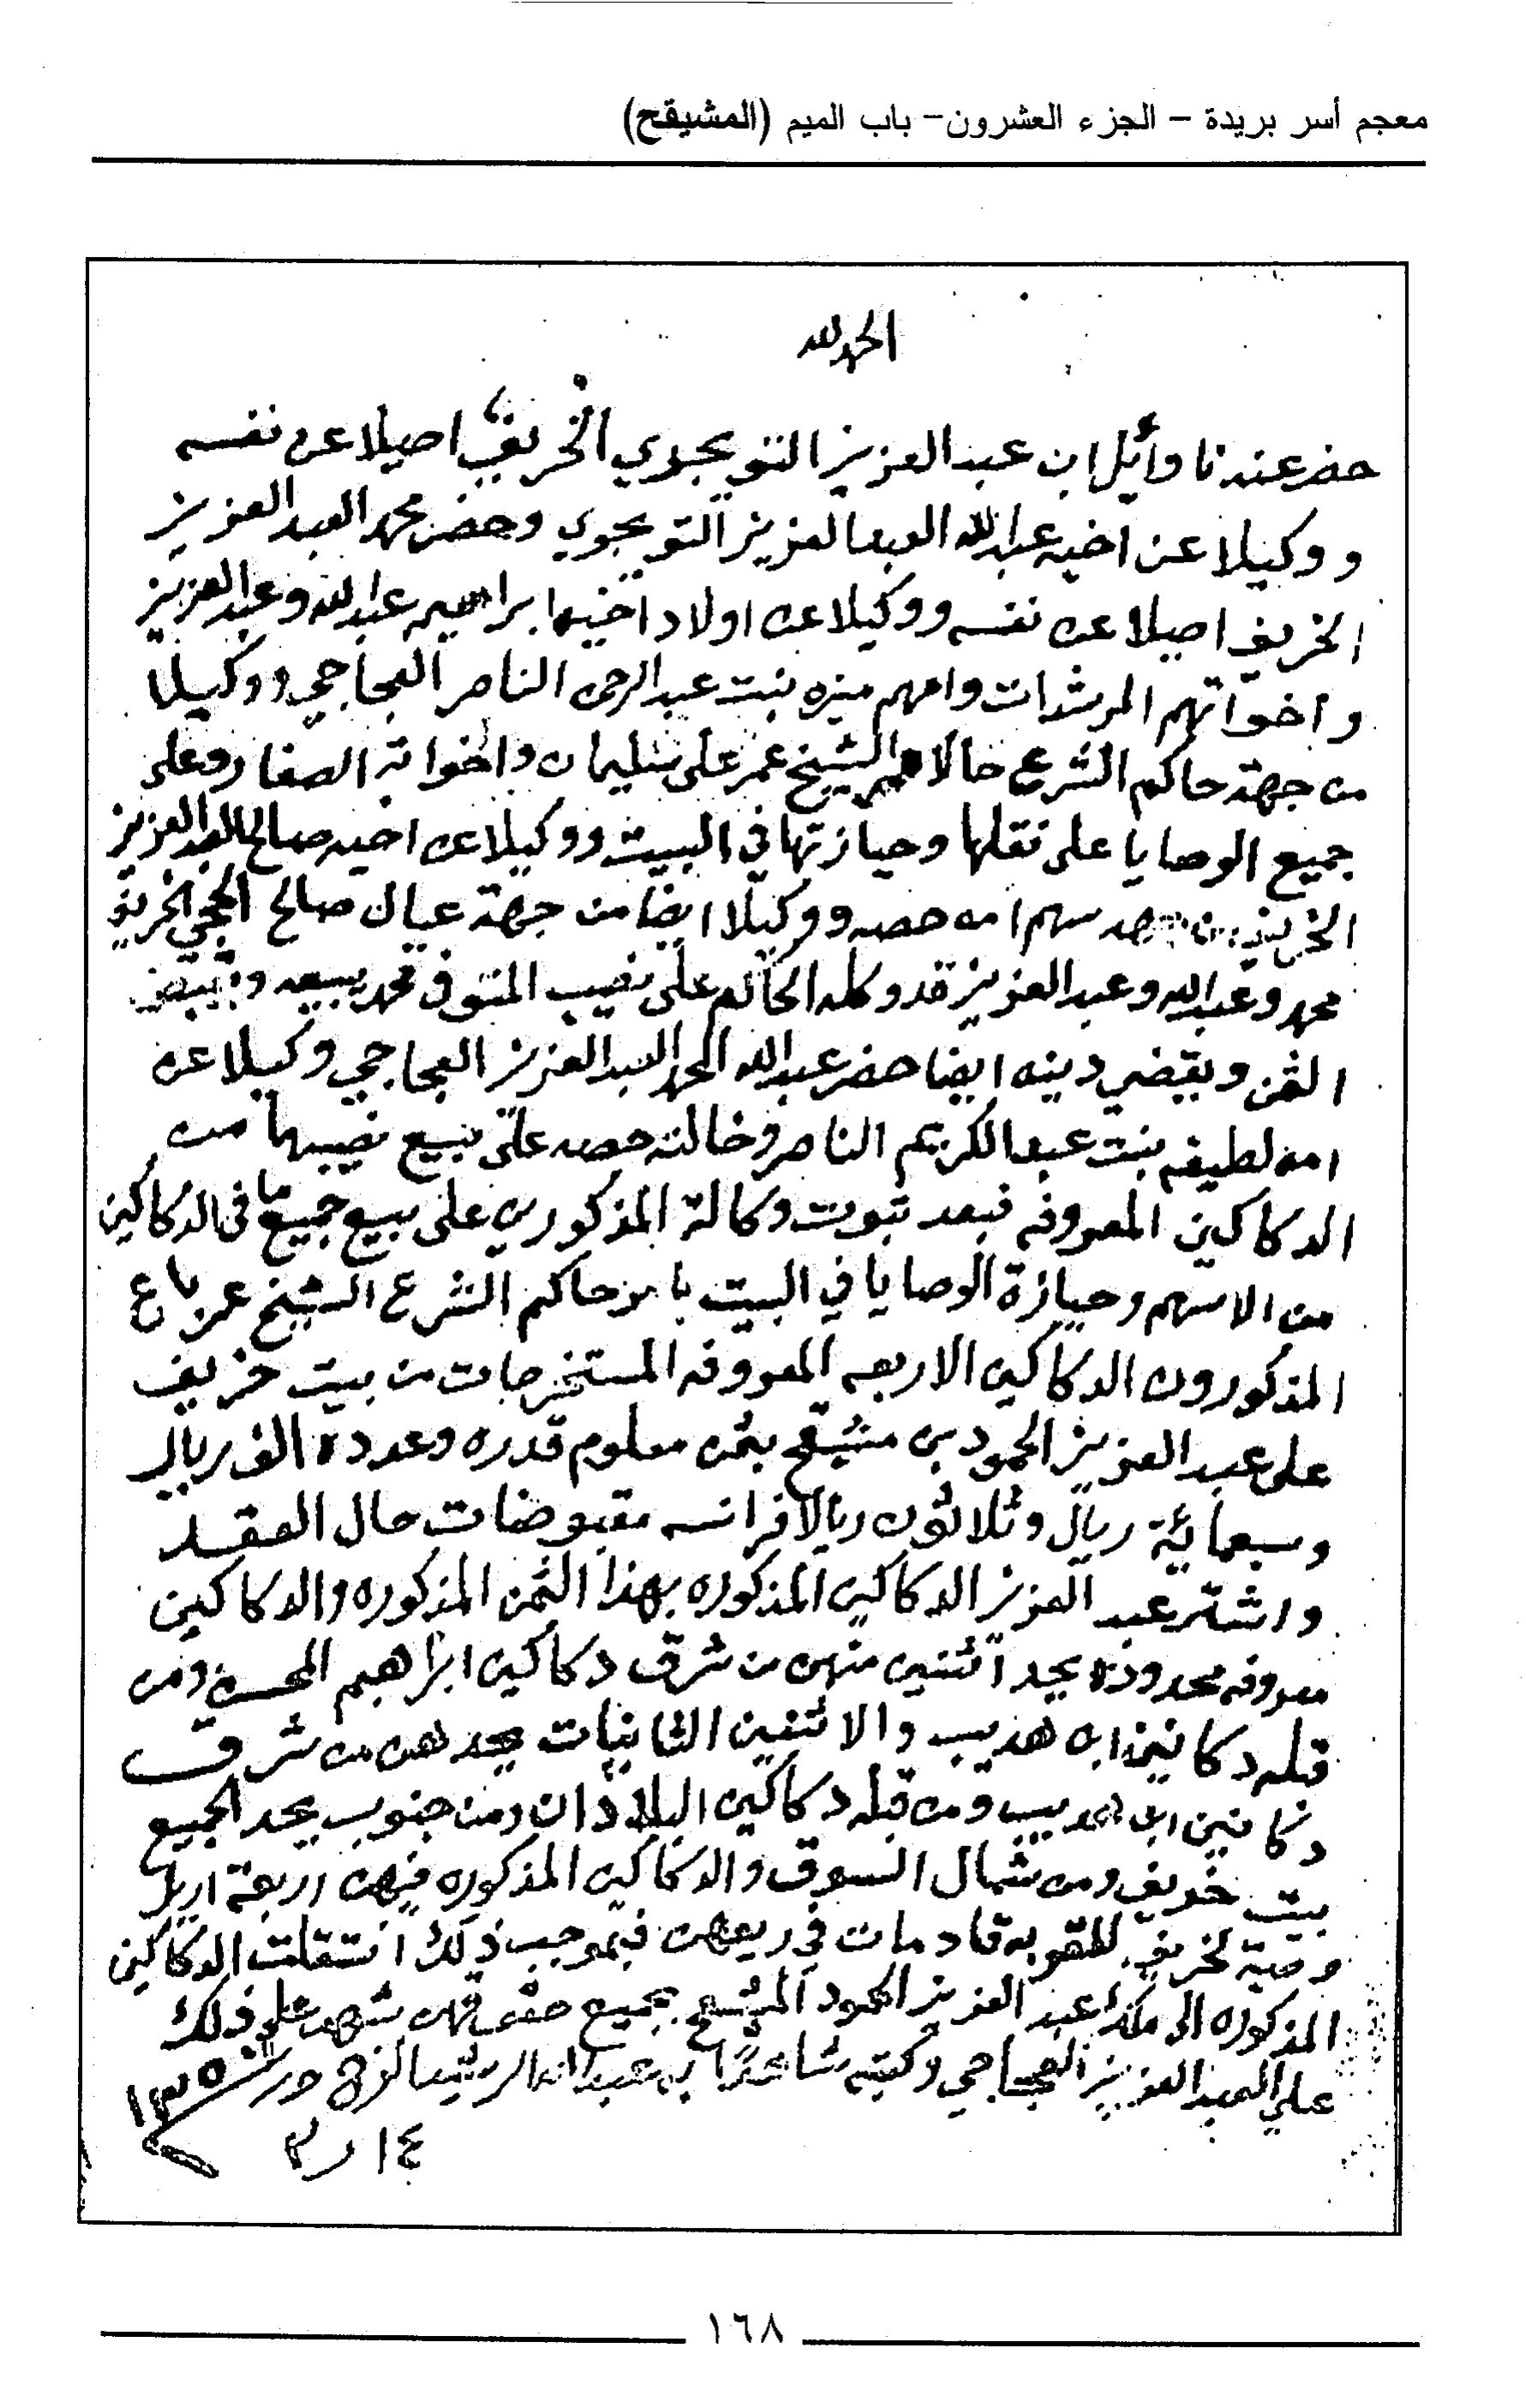 معجم أسر بريدة – الجزء العشرون – باب الميم (المشيقح)
الحمد لله
حضر عندنا وائل ابن عبد العزيز التويجري الخريف اصيلا عن نفسه
و وكيلا عن اخيه عبدالله العبدالعزيز التويجري وحضر محمد العبد العزيز
الخريف اصيلا عن نفسه ووكيلا عن اولاد اخيه ابراهيم عبدالله وعبدالعزيز
واخواتهم المرشدات وامهم منيره بنت عبدالرحمن الناصر العجاجي ووكيلا
من جهة حاكم الشرع حالا الشيخ عمر على سليمان واخواته الصغار وعلى
جميع الوصايا على نقلها وحيازتها في البيت ووكيلا عن اخيه صالح العبدالعزيز
الخريف سهم امه حصه ووكيلا ايضا من جهة عيال صالح الحجي الخريف
محمد وعبدالله وعبد العزيز قد وكله الحاكم على نصيب المتوفى محمد يبيعه ويقبض
الثمن ويقضي دينه ايضا حضر عبدالله المحمد العبدالعزيز العجاجي وكيلا عن
امه لطيفه بنت عبدالكريم الناصر وخالته حصه على بيع نصيبهما من
الدكاكين المعروفه فبعد ثبوت وكالة المذكورين على بيع جميع ما في الدكاكين
من الاسهم وحيازة الوصايا في البيت بامر حاكم الشرع الشيخ عمر باع
المذكورون الدكاكين الاربعه المعروفه المستخرجات من بيت خريف
على عبد العزيز الحمود بن مشيقح بثمن معلوم قدره وعدده الف ريال
وسبعمائة ريال وثلاثون ريالا فرانسه مقبوضات حال العقد
واشتر عبد العزيز الدكاكين المذكوره بهذا الثمن المذكوره والدكاكين
معروفه محدوده يحد اثنتين منهن من شرق دكاكين ابراهيم المحسن ومن
قبله دكانين ابن هديب والاثنتين الثانيات يحدهن من شرق
دكانين ابن هديب ومن قبله دكاكين البلاذان ومن جنوب يحد الجميع
بيت خريف ومن شمال السوق والدكاكين المذكوره فيهن اربعة اريل
وصية لخريف قادمات في ريعهن فبموجب ذلك انتقلت الدكاكين
المذكوره الى ملك عبد العزيز الحمود المشيقح بجميع حقوقهن شهد على ذلك
علي العبد العزيز العجاجي وكتبه شاهدًا به عبدالله الرشيد الفرج حرر سنة ١٣٥٠
١٤ ر ٢
١٦٨